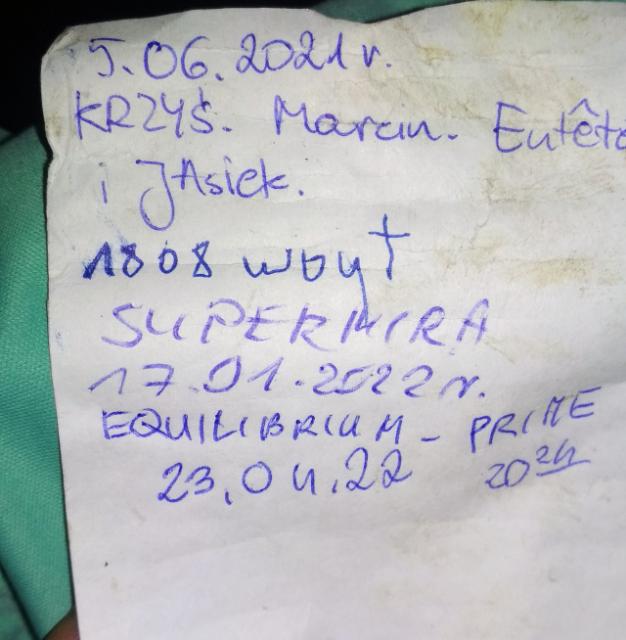 5.06.2021r.
KRZYŚ. Marcin. Eutêt
i JAsiek.
1808 woyt
SUPERMIRA
17.01.2022r.
EQUILIBRIUM - PRIME
23.04.22 20²⁴